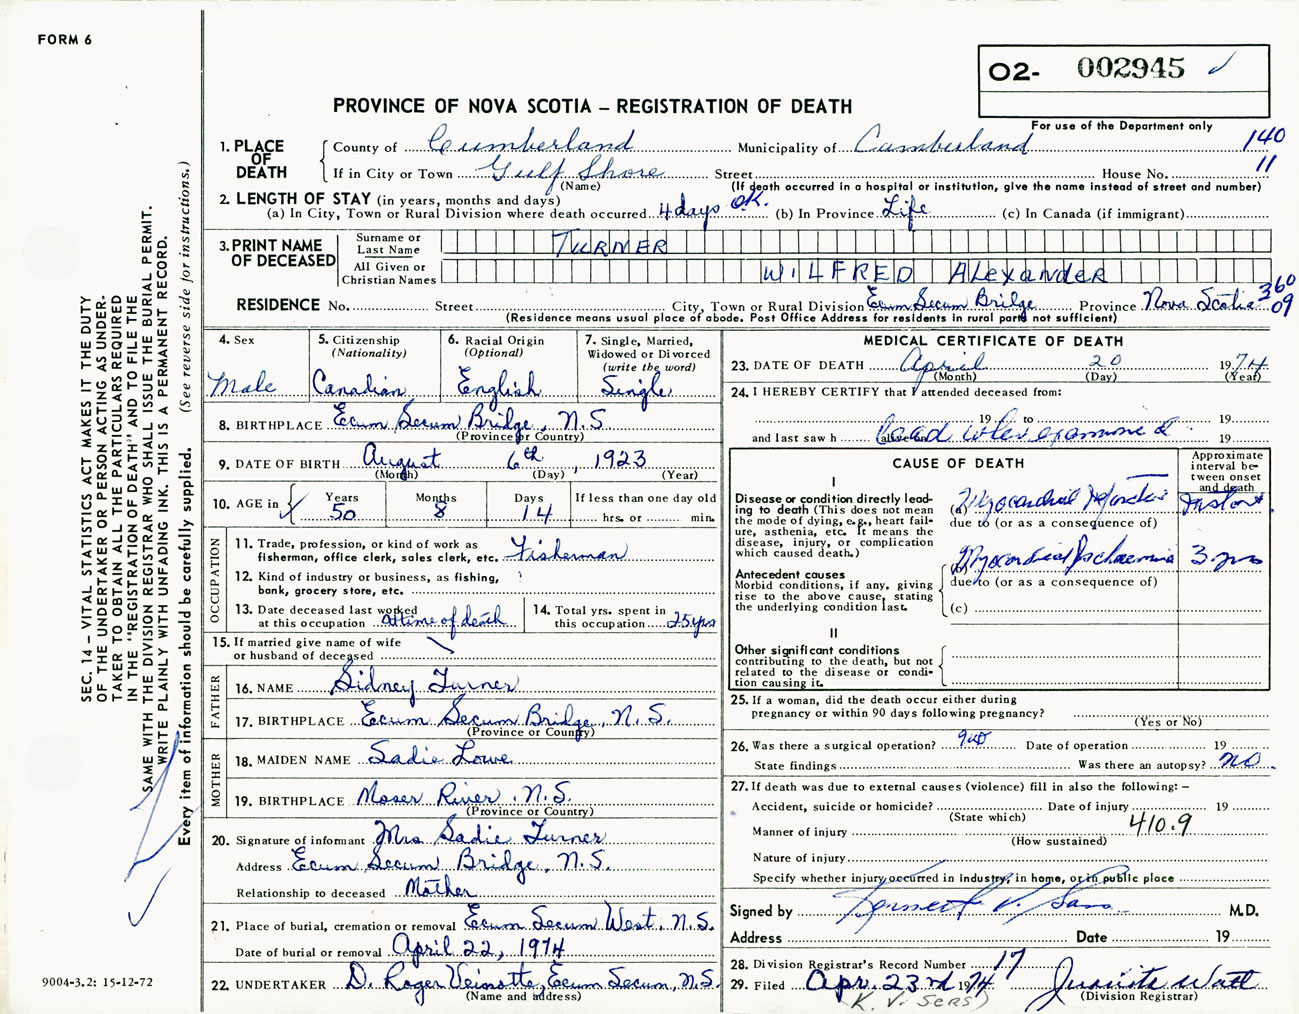 FORM 6
O2- 002945
PROVINCE OF NOVA SCOTIA – REGISTRATION OF DEATH
For use of the Department only
140
11
1. PLACE OF DEATH
County of Cumberland Municipality of Cumberland
If in City or Town Gulf Shore Street House No.
(Name) (If death occurred in a hospital or institution, give the name instead of street and number)
2. LENGTH OF STAY (in years, months and days)
(a) In City, Town or Rural Division where death occurred 4 days O.K. (b) In Province Life (c) In Canada (if immigrant)
3. PRINT NAME OF DECEASED
Surname or Last Name TURNER
All Given or Christian Names WILFRED ALexander
360
09
RESIDENCE No. Street City, Town or Rural Division Ecum Secum Bridge Province Nova Scotia
(Residence means usual place of abode. Post Office Address for residents in rural parts not sufficient)
4. Sex Male
5. Citizenship (Nationality) Canadian
6. Racial Origin (Optional) English
7. Single, Married, Widowed or Divorced (write the word) Single
8. BIRTHPLACE Ecum Secum Bridge, N.S
(Province or Country)
9. DATE OF BIRTH August 6th, 1923
(Month) (Day) (Year)
10. AGE in Years 50 Months 8 Days 14 If less than one day old hrs. or min.
OCCUPATION
11. Trade, profession, or kind of work as fisherman, office clerk, sales clerk, etc. Fisherman
12. Kind of industry or business, as fishing, bank, grocery store, etc.
13. Date deceased last worked at this occupation at time of death
14. Total yrs. spent in this occupation 25 yrs
15. If married give name of wife or husband of deceased
FATHER
16. NAME Sidney Turner
17. BIRTHPLACE Ecum Secum Bridge, N.S.
(Province or Country)
MOTHER
18. MAIDEN NAME Sadie Lowe
19. BIRTHPLACE Moser River, N.S.
(Province or Country)
20. Signature of informant Mrs Sadie Turner
Address Ecum Secum Bridge, N.S.
Relationship to deceased Mother
21. Place of burial, cremation or removal Ecum Secum West, N.S.
Date of burial or removal April 22, 1974
22. UNDERTAKER D. Roger Veinotte, Ecum Secum, N.S.
(Name and address)
MEDICAL CERTIFICATE OF DEATH
23. DATE OF DEATH April 20 1974
(Month) (Day) (Year)
24. I HEREBY CERTIFY that I attended deceased from:
19 to 19
and last saw h alive on Dead when examined 19
CAUSE OF DEATH
Approximate interval between onset and death
I
Disease or condition directly leading to death (This does not mean the mode of dying, e.g., heart failure, asthenia, etc. It means the disease, injury, or complication which caused death.)
(a) Myocardial Infarction Instant
due to (or as a consequence of)
Antecedent causes
Morbid conditions, if any, giving rise to the above cause, stating the underlying condition last.
(b) Myocardial Ischaemia 3 yrs
due to (or as a consequence of)
(c)
II
Other significant conditions
contributing to the death, but not related to the disease or condition causing it.
25. If a woman, did the death occur either during pregnancy or within 90 days following pregnancy?
(Yes or No)
26. Was there a surgical operation? no Date of operation 19
State findings Was there an autopsy? no
27. If death was due to external causes (violence) fill in also the following: –
Accident, suicide or homicide? Date of injury 19
(State which)
Manner of injury 410.9
(How sustained)
Nature of injury
Specify whether injury occurred in industry, in home, or in public place
Signed by Kenneth V. Sers M.D.
Address Date 19
28. Division Registrar's Record Number 17
29. Filed Apr. 23rd 1974 Juanita Watt
(Division Registrar)
K. V. SERS)
SEC. 14 – VITAL STATISTICS ACT MAKES IT THE DUTY
OF THE UNDERTAKER OR PERSON ACTING AS UNDER-
TAKER TO OBTAIN ALL THE PARTICULARS REQUIRED
IN THE "REGISTRATION OF DEATH" AND TO FILE THE
SAME WITH THE DIVISION REGISTRAR WHO SHALL ISSUE THE BURIAL PERMIT.
WRITE PLAINLY WITH UNFADING INK. THIS IS A PERMANENT RECORD.
Every item of information should be carefully supplied. (See reverse side for instructions.)
9004-3.2: 15-12-72